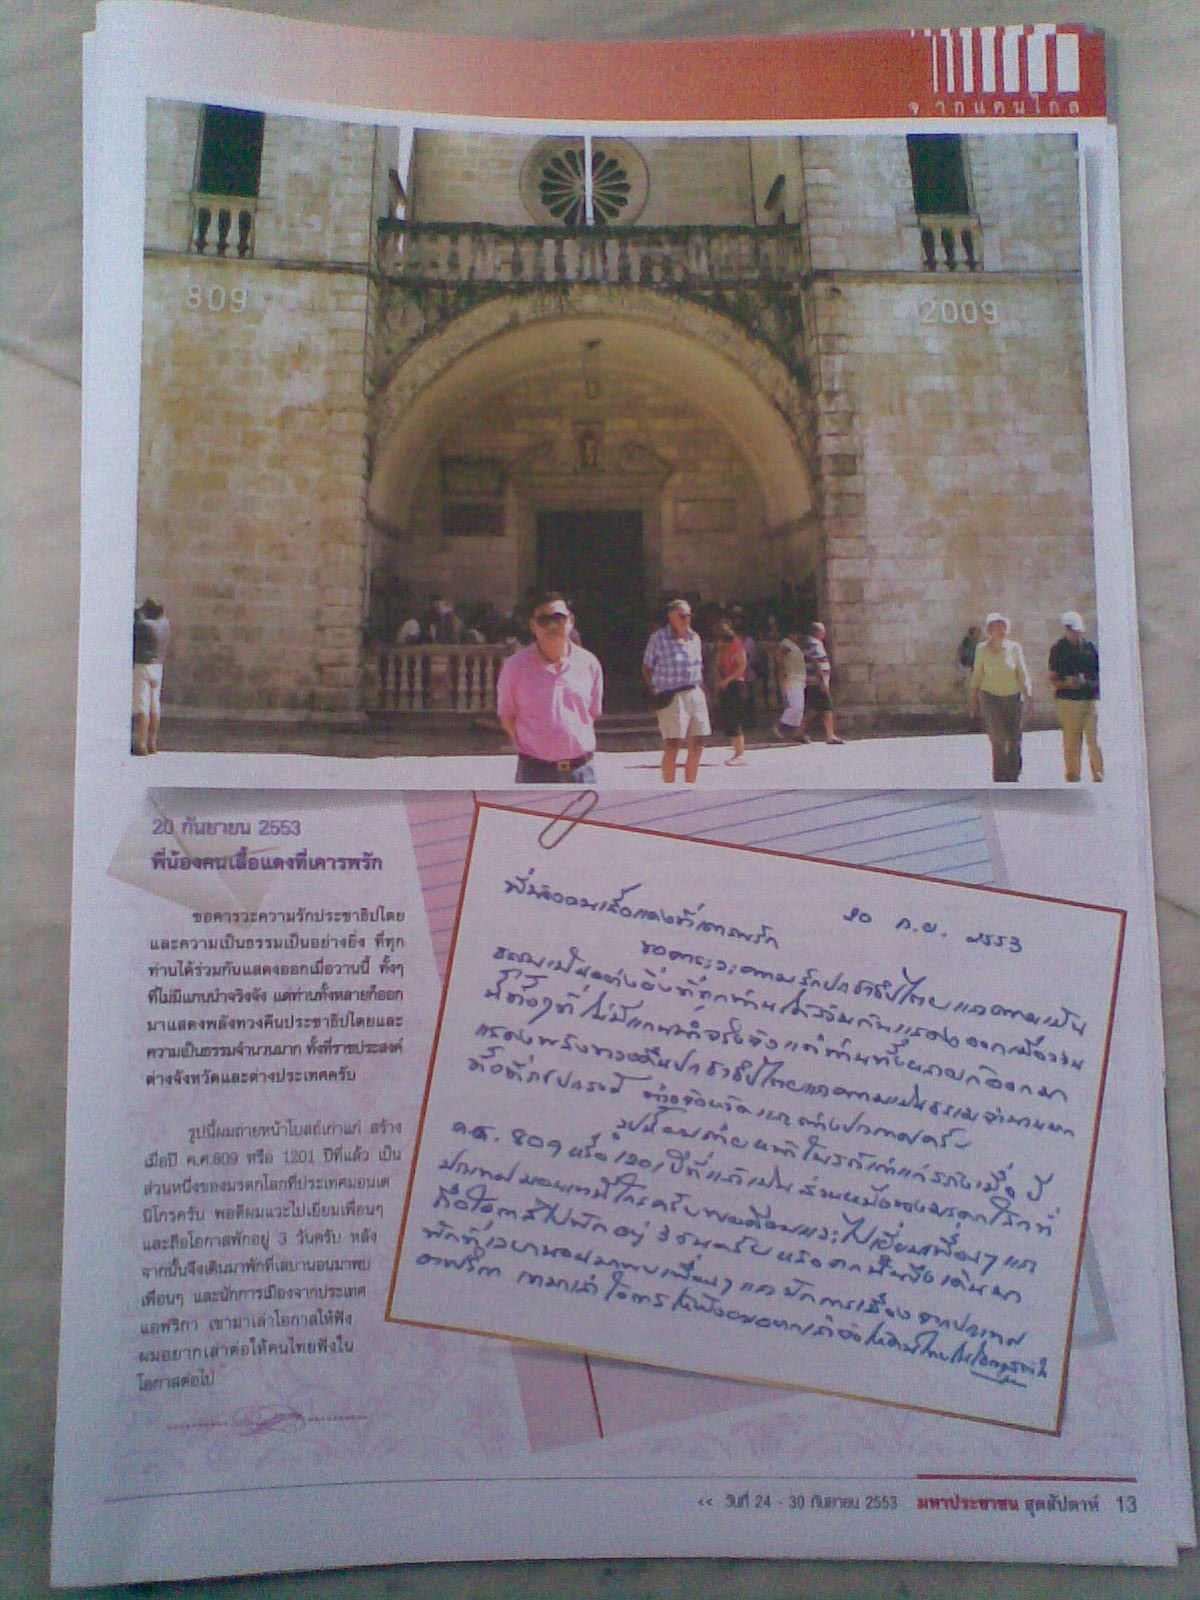 จากแดนไกล
809
2009
20 กันยายน 2553
พี่น้องคนเสื้อแดงที่เคารพรัก
ขอคารวะความรักประชาธิปไตย
และความเป็นธรรมเป็นอย่างยิ่ง ที่ทุก
ท่านได้ร่วมกันแสดงออกเมื่อวานนี้ ทั้งๆ
ที่ไม่มีแกนนำจริงจัง แต่ท่านทั้งหลายก็ออก
มาแสดงพลังทวงคืนประชาธิปไตยและ
ความเป็นธรรมจำนวนมาก ทั้งที่ราชประสงค์
ต่างจังหวัดและต่างประเทศครับ
รูปนี้ผมถ่ายหน้าโบสถ์เก่าแก่ สร้าง
เมื่อปี ค.ศ.809 หรือ 1201 ปีที่แล้ว เป็น
ส่วนหนึ่งของมรดกโลกที่ประเทศมอนเต
นิโกรครับ พอดีผมแวะไปเยี่ยมเพื่อนๆ
และถือโอกาสพักอยู่ 3 วันครับ หลัง
จากนั้นจึงเดินมาพักที่เลบานอนมาพบ
เพื่อนๆ และนักการเมืองจากประเทศ
แอฟริกา เขามาเล่าโอกาสให้ฟัง
ผมอยากเล่าต่อให้คนไทยฟังใน
โอกาสต่อไป
20 ก.ย. 2553
พี่น้องคนเสื้อแดงที่เคารพรัก
ขอคารวะความรักประชาธิปไตยและความเป็น
ธรรมเป็นอย่างยิ่งที่ทุกท่านได้ร่วมกันแสดงออกเมื่อวาน
นี้ทั้งๆที่ไม่มีแกนนำจริงจังแต่ท่านทั้งหลายก็ออกมา
แสดงพลังทวงคืนประชาธิปไตยและความเป็นธรรมจำนวนมาก
ทั้งที่ราชประสงค์ ต่างจังหวัดและต่างประเทศครับ
รูปนี้ผมถ่ายหน้าโบสถ์เก่าแก่สร้างเมื่อปี
ค.ศ. 809 หรือ 1201 ปีที่แล้วเป็นส่วนหนึ่งของมรดกโลกที่
ประเทศมอนเตนิโกรครับพอดีผมแวะไปเยี่ยมเพื่อนๆและ
ถือโอกาสไปพักอยู่ 3 วันครับ หลังจากนั้นจึงเดินมา
พักที่เลบานอนมาพบเพื่อนๆและนักการเมืองจากประเทศ
อาฟริกา เขามาเล่าโอกาสให้ฟังผมอยากเล่าต่อให้คนไทยฟังใน
<< วันที่ 24 - 30 กันยายน 2553 มหาประชาชน สุดสัปดาห์ 13